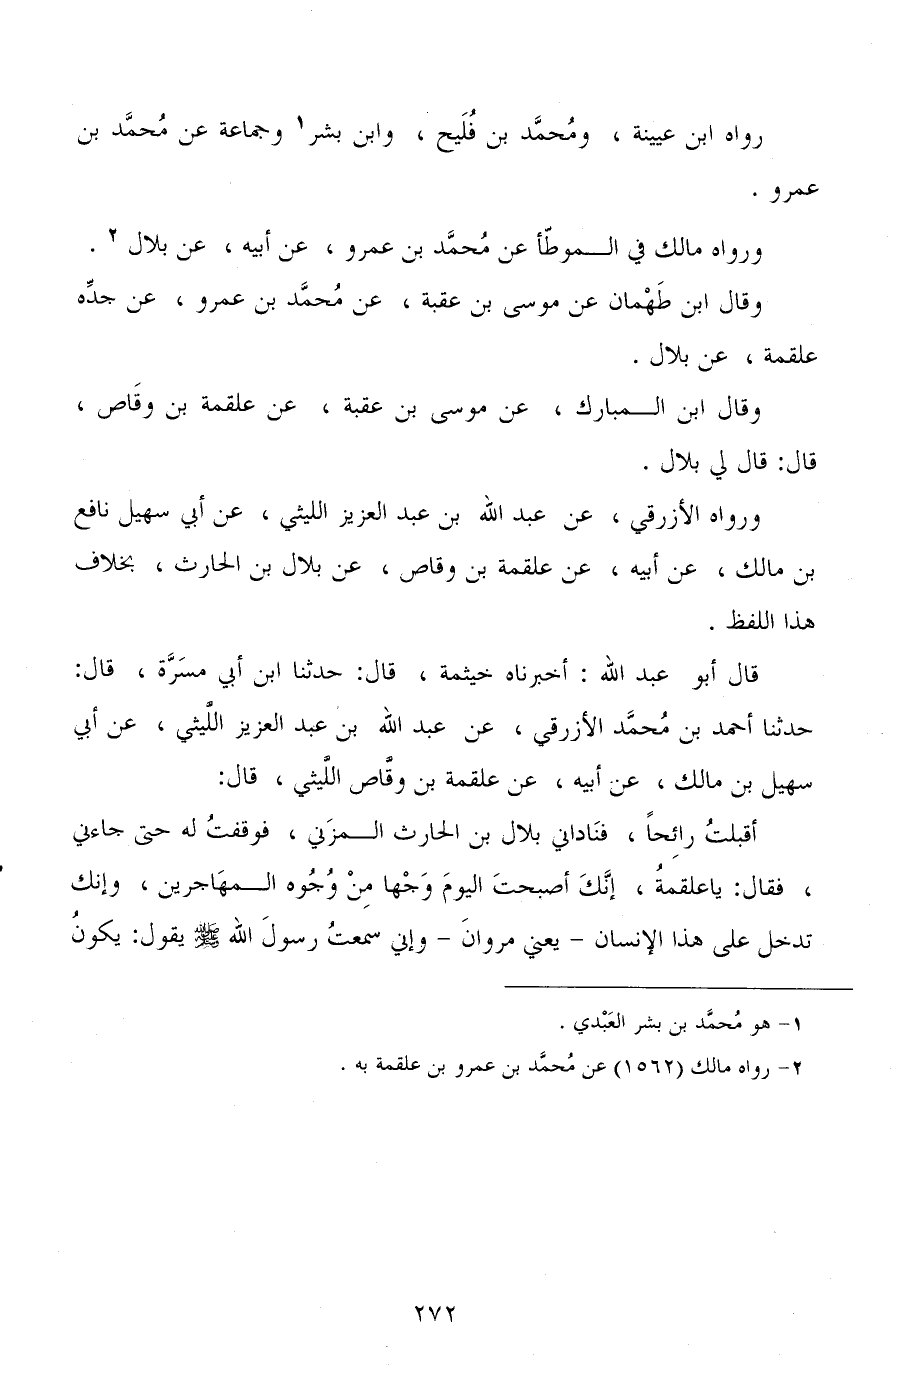 رواه ابن عيينة ، ومُحمَّد بن فُلَيح ، وابن بشر١ وجماعة عن مُحمَّد بن
عمرو .
ورواه مالك في الـموطّأ عن مُحمَّد بن عمرو ، عن أبيه ، عن بلال ٢ .
وقال ابن طَهْمان عن موسى بن عقبة ، عن مُحمَّد بن عمرو ، عن جدِّه
علقمة ، عن بلال .
وقال ابن الـمبارك ، عن موسى بن عقبة ، عن علقمة بن وقَاص ،
قال: قال لي بلال .
ورواه الأزرقي ، عن عبد الله بن عبد العزيز الليثي ، عن أبي سهيل نافع
بن مالك ، عن أبيه ، عن علقمة بن وقاص ، عن بلال بن الحارث ، بخلاف
هذا اللفظ .
قال أبو عبد الله : أخبرناه خيثمة ، قال: حدثنا ابن أبي مسَرَّة ، قال:
حدثنا أحمد بن مُحمَّد الأزرقي ، عن عبد الله بن عبد العزيز اللَّيثي ، عن أبي
سهيل بن مالك ، عن أبيه ، عن علقمة بن وقَّاص اللَّيثي ، قال:
أقبلتُ رائِحاً ، فنَاداني بلال بن الحارث الـمزَني ، فوقفتُ له حتى جاءني
، فقال: ياعلقمةُ ، إنَّكَ أصبحتَ اليومَ وَجْها مِنْ وُجُوه الـمهَاجرين ، وإنك
تدخل على هذا الإنسان - يعني مروانَ - وإني سمعتُ رسولَ الله ﷺ يقول: يكونُ
١- هو مُحمَّد بن بشر العَبْدي .
٢- رواه مالك (١٥٦٢) عن مُحمَّد بن عمرو بن علقمة به .
٢٧٢